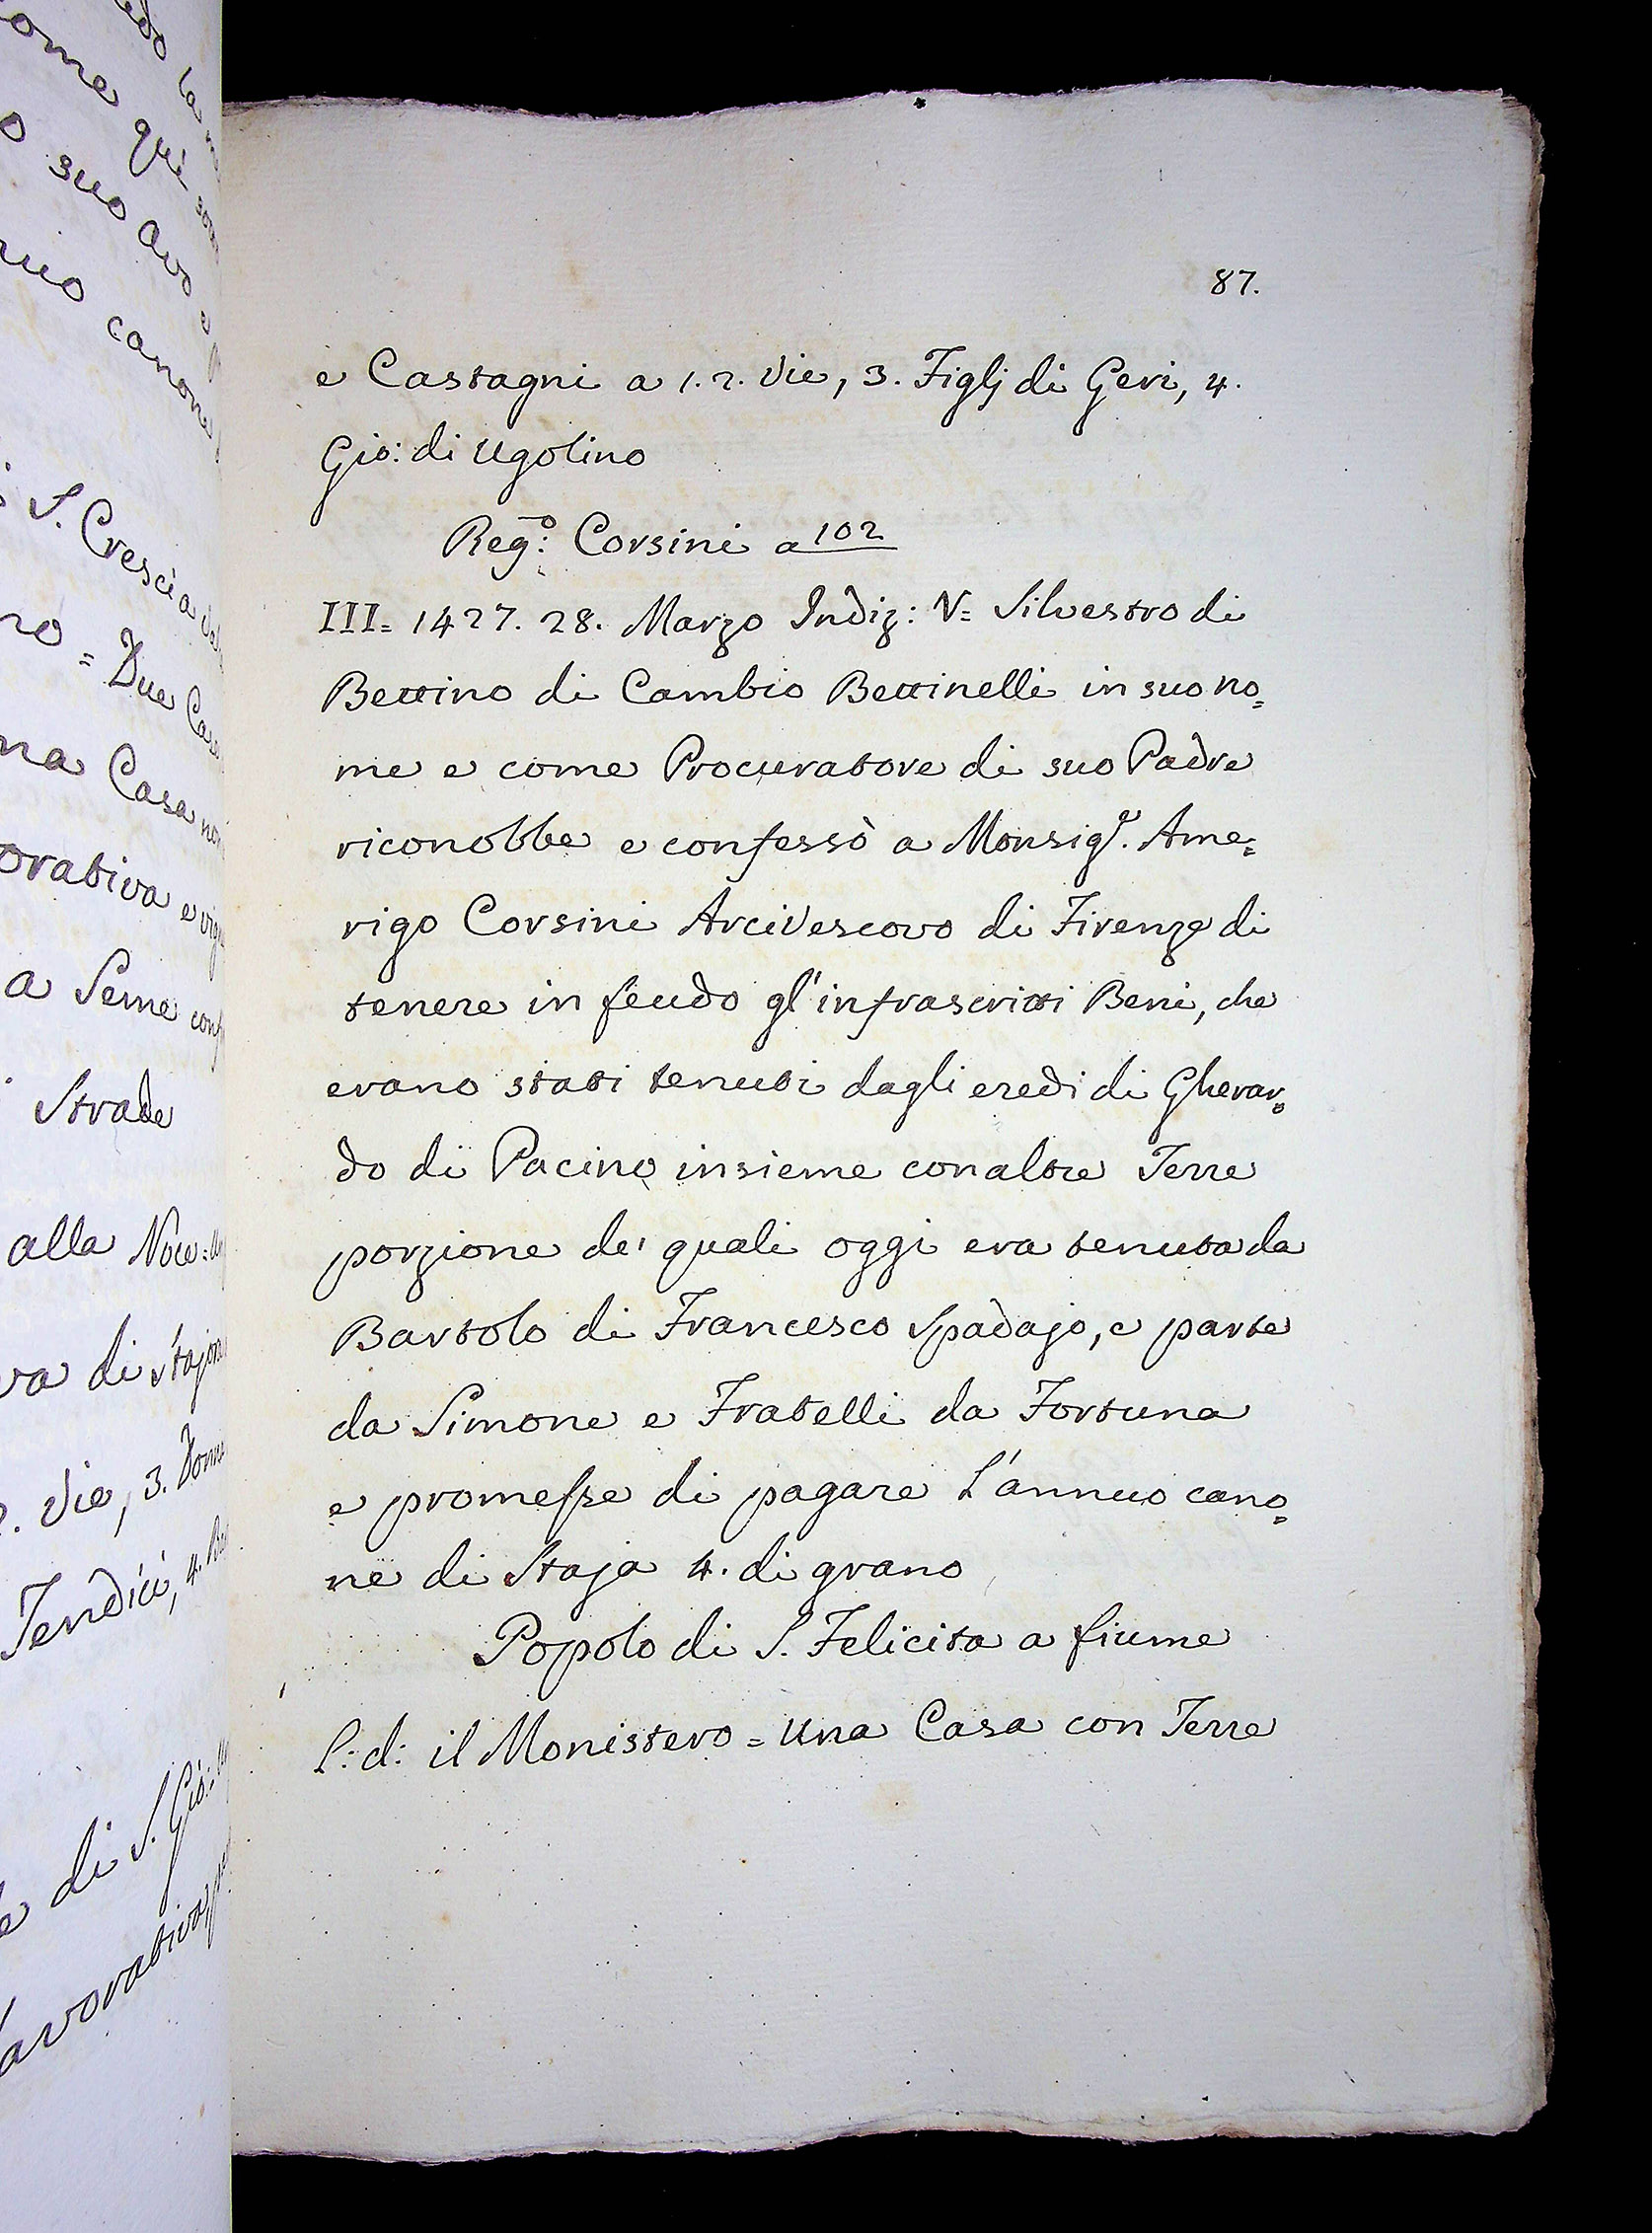 87.
e Castagni a 1. 2. Vie, 3. Figlj di Geri, 4.
Gio: di Ugolino
Reg:º Corsini a 102
III= 1427. 28. Marzo Indiz: V= Silvestro di
Bettino di Cambio Bettinelli in suo no=
me e come Procuratore di suo Padre
riconobbe e confessò a Monsigr. Ame=
rigo Corsini Arcivescovo di Firenze di
tenere in feudo gl'infrascritti Beni, che
erano stati tenuti dagli eredi di Gherar=
do di Pacino insieme con altre Terre
porzione de' quali oggi era tenuta da
Bartolo di Francesco Spadajo, e parte
da Simone e Fratelli da Fortuna
e promesse di pagare l'annuo cano=
ne di Staja 4. di grano
Popolo di S. Felicita a fiume
l: d: il Monistero = Una Casa con Terre
ome qui
o suo avo e
canone
S. Crescia
no = Due Case
na Casa
orativa e
a Seme
Strade
alla Noce =
va di
2. Vie, 3.
Tendici, 4.
di S. Gio:
lavorativa